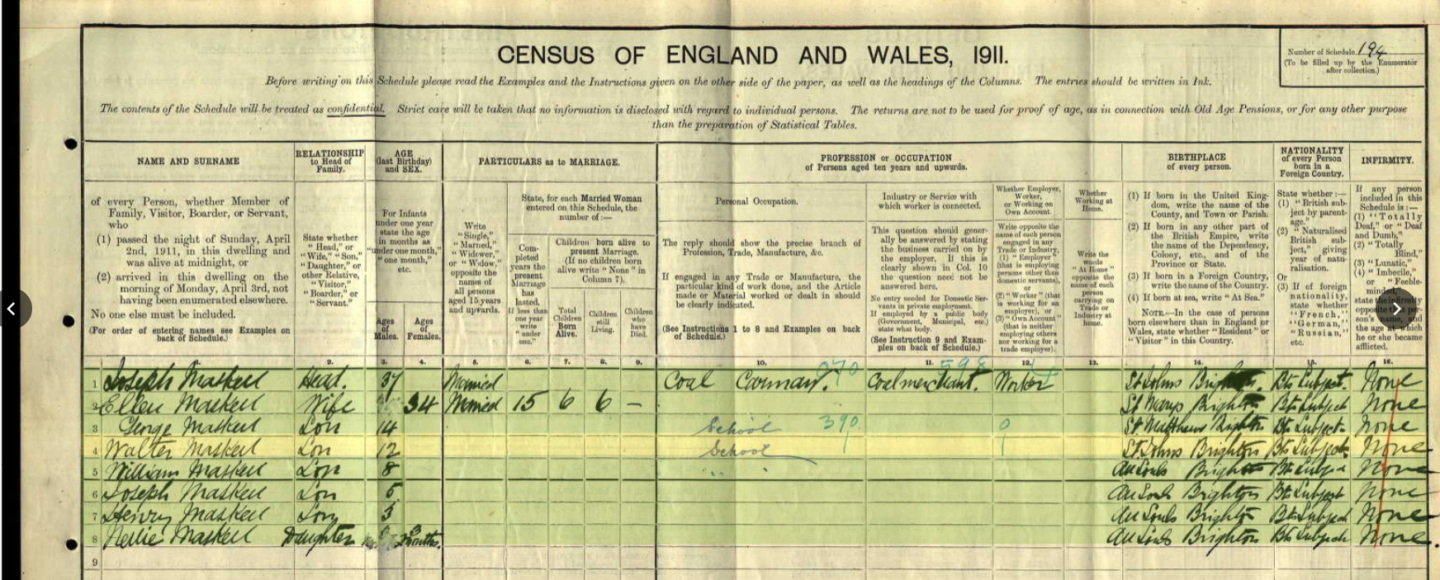 CENSUS OF ENGLAND AND WALES, 1911.
Number of Schedule 194
(To be filled up by the Enumerator after collection.)
Before writing on this Schedule please read the Examples and the Instructions given on the other side of the paper, as well as the headings of the Columns. The entries should be written in Ink.
The contents of the Schedule will be treated as confidential. Strict care will be taken that no information is disclosed with regard to individual persons. The returns are not to be used for proof of age, as in connection with Old Age Pensions, or for any other purpose
than the preparation of Statistical Tables.
NAME AND SURNAME
of every Person, whether Member of Family, Visitor, Boarder, or Servant, who
(1) passed the night of Sunday, April 2nd, 1911, in this dwelling and was alive at midnight, or
(2) arrived in this dwelling on the morning of Monday, April 3rd, not having been enumerated elsewhere.
No one else must be included.
(For order of entering names see Examples on back of Schedule.)
RELATIONSHIP to Head of Family.
State whether "Head," or "Wife," "Son," "Daughter," or other Relative, "Visitor," "Boarder," or "Servant."
AGE (last Birthday) and SEX.
For Infants under one year state the age in months as "under one month," "one month," etc.
Ages of Males.
Ages of Females.
PARTICULARS as to MARRIAGE.
Write "Single," "Married," "Widower," or "Widow," opposite the names of all persons aged 15 years and upwards.
State, for each Married Woman entered on this Schedule, the number of:—
Completed years the present Marriage has lasted. If less than one year write "under one."
Children born alive to present Marriage. (If no children born alive write "None" in Column 7).
Total Children Born Alive.
Children still Living.
Children who have Died.
PROFESSION or OCCUPATION
of Persons aged ten years and upwards.
Personal Occupation.
The reply should show the precise branch of Profession, Trade, Manufacture, &c.
If engaged in any Trade or Manufacture, the particular kind of work done, and the Article made or Material worked or dealt in should be clearly indicated.
(See Instructions 1 to 8 and Examples on back of Schedule.)
Industry or Service with which worker is connected.
This question should generally be answered by stating the business carried on by the employer. If this is clearly shown in Col. 10 the question need not be answered here.
No entry needed for Domestic Servants in private employment.
If employed by a public body (Government, Municipal, etc.) state what body.
(See Instruction 9 and Examples on back of Schedule.)
Whether Employer, Worker, or Working on Own Account.
Write opposite the name of each person engaged in any Trade or Industry, (1) "Employer" (that is employing persons other than domestic servants), or (2) "Worker" (that is working for an employer), or (3) "Own Account" (that is neither employing others nor working for a trade employer).
Whether Working at Home.
Write the words "At Home" opposite the name of each person carrying on Trade or Industry at home.
BIRTHPLACE of every person.
(1) If born in the United Kingdom, write the name of the County, and Town or Parish.
(2) If born in any other part of the British Empire, write the name of the Dependency, Colony, etc., and of the Province or State.
(3) If born in a Foreign Country, write the name of the Country.
(4) If born at sea, write "At Sea."
NOTE.—In the case of persons born elsewhere than in England or Wales, state whether "Resident" or "Visitor" in this Country.
NATIONALITY of every Person born in a Foreign Country.
State whether:—
(1) "British subject by parentage."
(2) "Naturalised British subject," giving year of naturalisation.
Or
(3) If of foreign nationality, state whether "French," "German," "Russian," etc.
INFIRMITY.
If any person included in this Schedule is:—
(1) "Totally Deaf," or "Deaf and Dumb,"
(2) "Totally Blind,"
(3) "Lunatic,"
(4) "Imbecile," or "Feeble-minded,"
state the infirmity opposite that person's name, and the age at which he or she became afflicted.
1. 2. 3. 4. 5. 6. 7. 8. 9. 10. 11. 12. 13. 14. 15. 16.
1 Joseph Maskell Head. 37 Married Coal Carman. 070 Coal merchant. 598 Worker St Johns Brighton Bt Subject. None
2 Ellen Maskell Wife 34 Married 15 6 6 — St Marys Brighton Bt Subject None
3 George Maskell Son 14 School 390 0 St Matthews Brighton Bt Subject. None
4 Walter Maskell Son 12 School St Johns Brighton Bt Subject. None
5 William Maskell Son 8 " " " All Souls Brighton Bt Subject None
6 Joseph Maskell Son 5 All Souls Brighton Bt Subject None
7 Henry Maskell Son 3 All Souls Brighton Bt Subject None
8 Nellie Maskell Daughter Months. All Souls Brighton Bt Subject None.
9